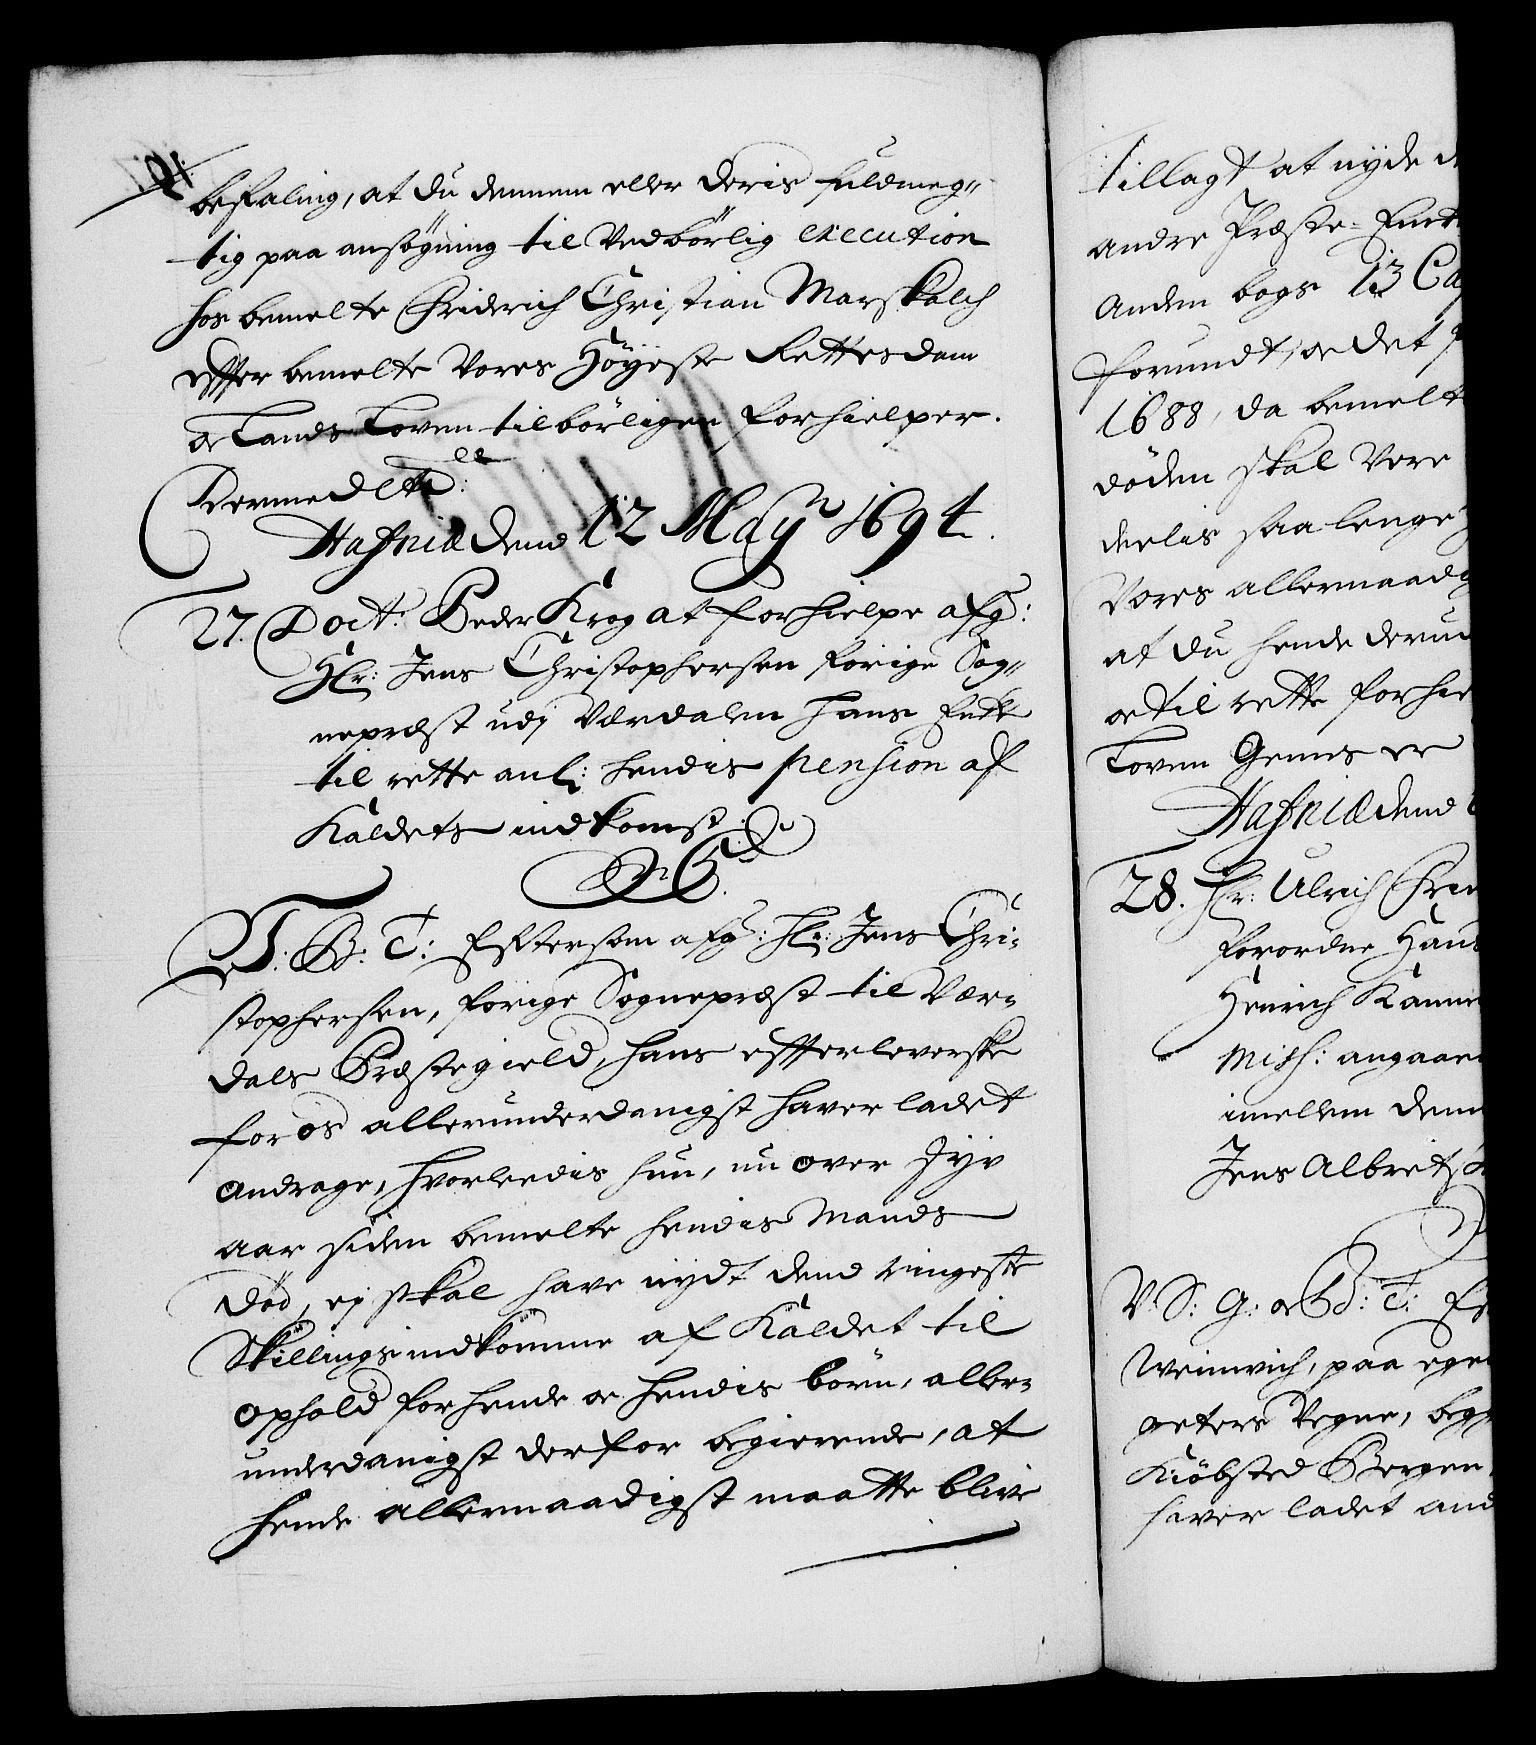 befaling, at du dennem eller deris fuldmeg-
tig paa ansögning til Vedbörlig execution
hos bemelte Friderich Christian Marskalch
effter bemelte Vores Höyeste Rettes dom
oc Lands Loven tilbörligen forhielper.
Dermed etc:
Hafniæ dend 12 May 1694.
27. Doct: Peder Krog at forhielpe afg:
Hr: Jens Christophersen forige Sog-
nepræst udj Værdalen hans Encke
til rette anl: hendis pension af
Kaldets indkomst.
C5.
V. B: T: Eftersom afg: Hr: Jens Chri-
stophersen, forige Sognepræst til Vær-
dals Præstegield, hans effterleverske
for os allerunderdanigst haver ladet
andrage, hvorledis hun, nu over Fyv
aar siden bemelte hendis Mands
död, ej skal have nydt dend ringeste
Skillings indkomme af Kaldet til
ophold for hende oc hendis börn, aller-
underdanigst derfor begierende, at
hende allernaadigst maatte blive
tillagt at nyde
andre Præste-Enck
anden bogs 13 Ca
forundt, oc det
1688, da bemelt
döden skal Vere
deelis saa lenge
Vores allernaadig
at du hende derud
oc til rette forhie
Loven Gemes er
Hafniæ dend
28. Hr: Ulrich Frid
forordne Hans
Henrich Kanne
Miss: angaaen
imellem dem
Jens Albret
V. S: G: oc B: T: Ef
Weinwich, paa egen
geters Vegne, beg
Kiöbsted Bergen,
haver ladet and